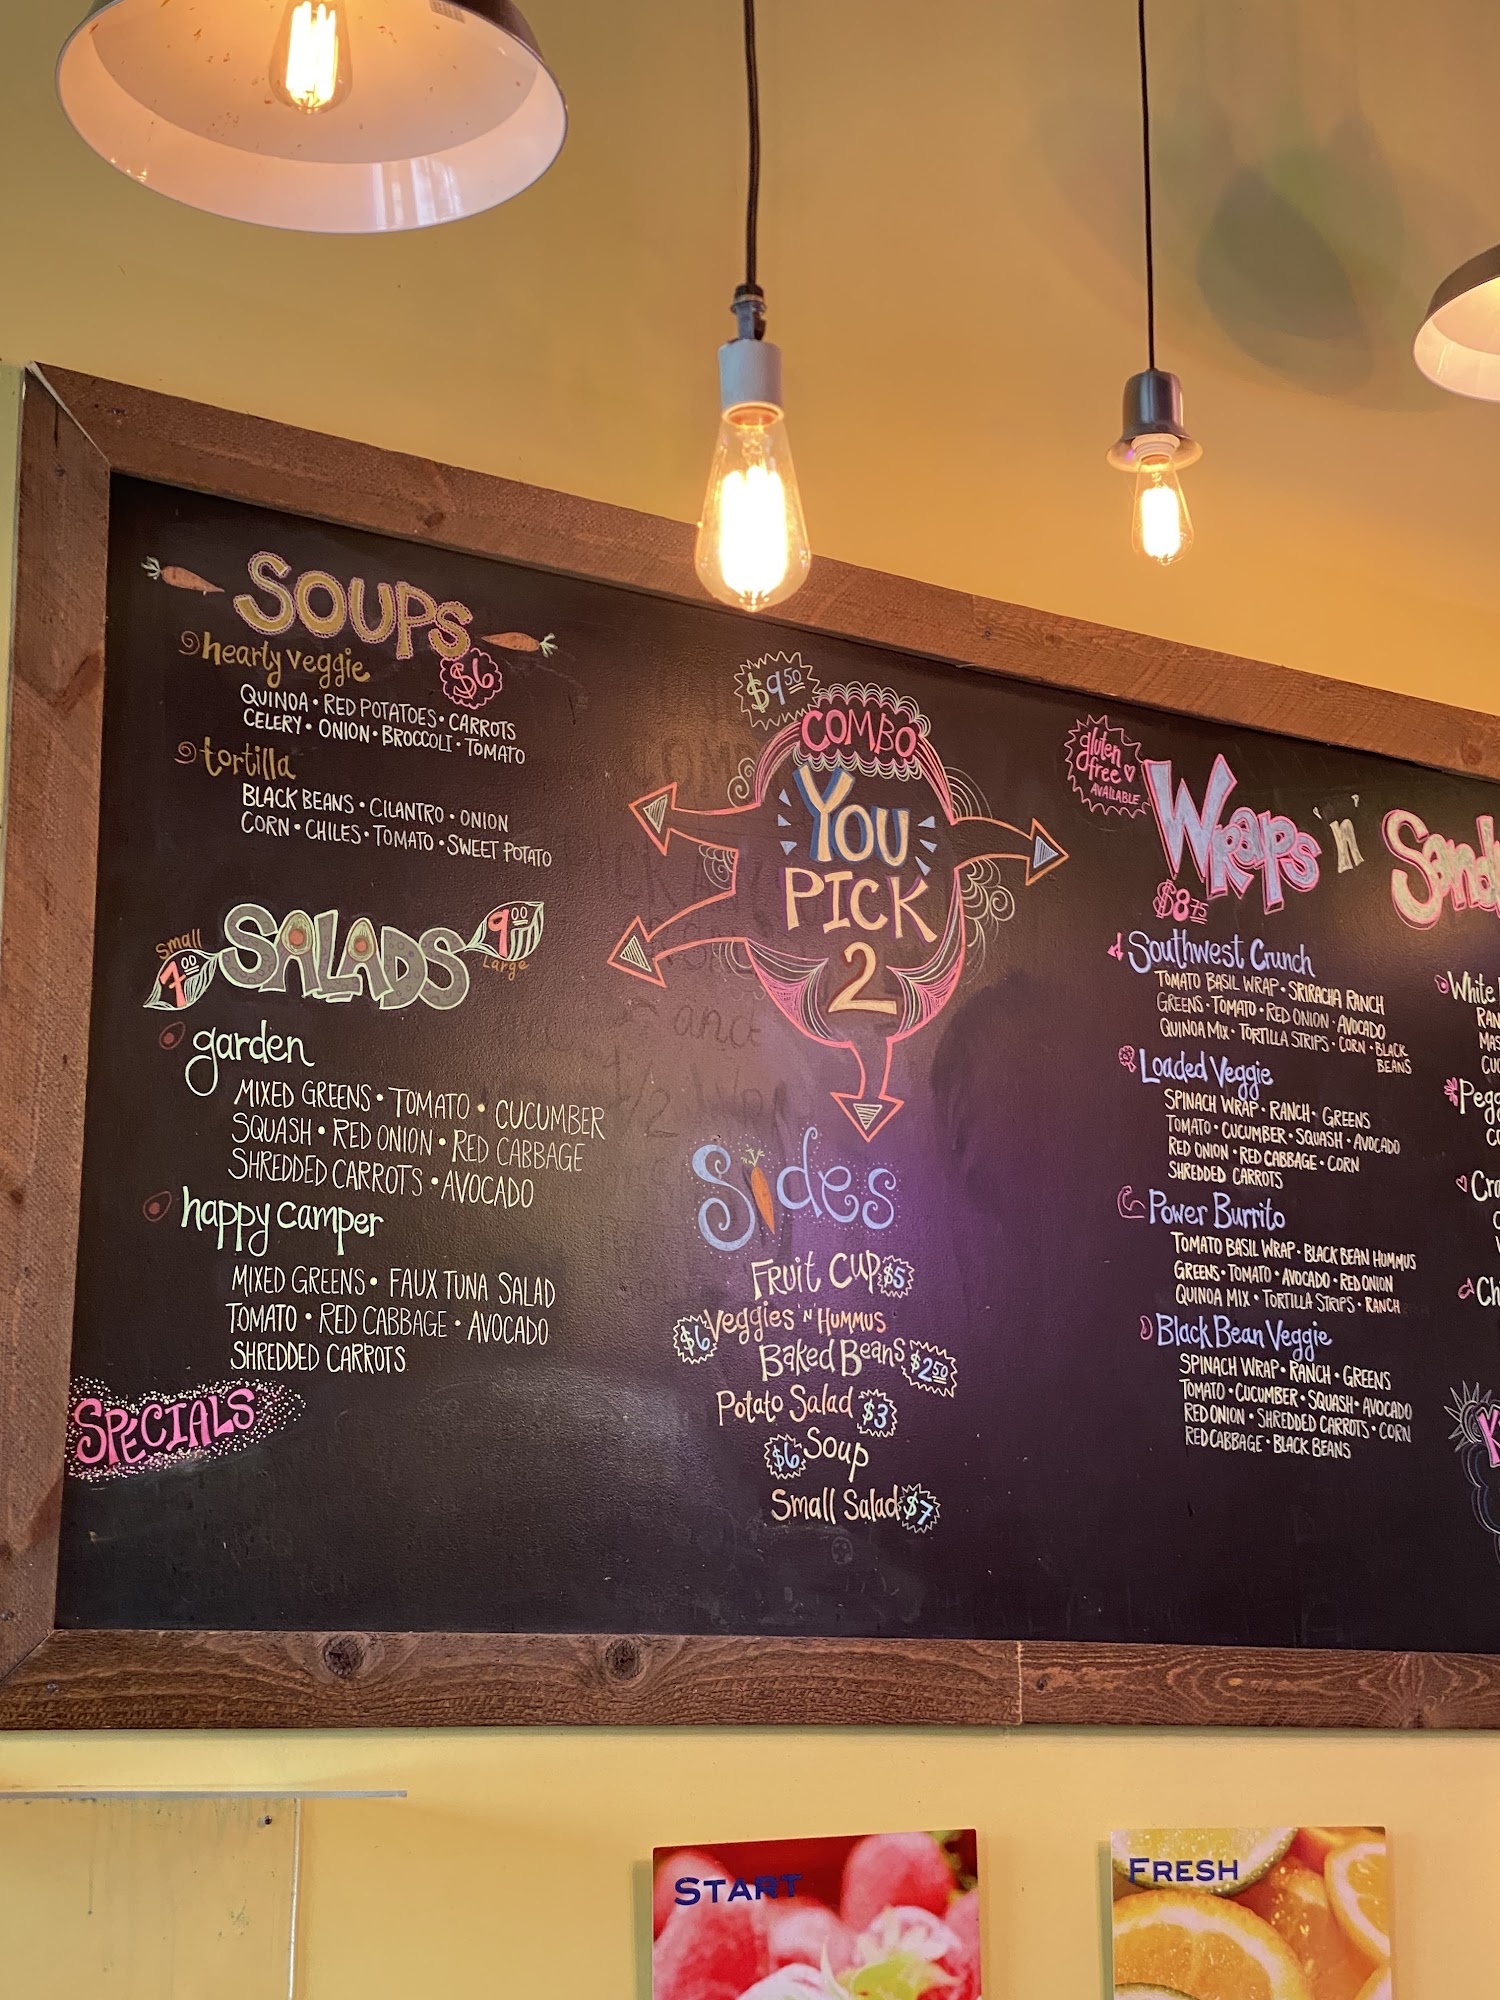 SOUPS
$6
hearty veggie
QUINOA • RED POTATOES • CARROTS
CELERY • ONION • BROCCOLI • TOMATO
tortilla
BLACK BEANS • CILANTRO • ONION
CORN • CHILES • TOMATO • SWEET POTATO
SALADS
Small
7.00
9.00
Large
garden
MIXED GREENS • TOMATO • CUCUMBER
SQUASH • RED ONION • RED CABBAGE
SHREDDED CARROTS • AVOCADO
happy camper
MIXED GREENS • FAUX TUNA SALAD
TOMATO • RED CABBAGE • AVOCADO
SHREDDED CARROTS
SPECIALS
$9.50
COMBO
YOU
PICK
2
Sides
FRUIT CUP $5
$6 Veggies 'N' HUMMUS
BAKED BEANS $2.50
Potato Salad $3
$6 Soup
Small Salad $7
gluten
free
AVAILABLE
WRAPS 'n'
$8.75
Southwest Crunch
TOMATO BASIL WRAP • SRIRACHA RANCH
GREENS • TOMATO • RED ONION • AVOCADO
QUINOA MIX • TORTILLA STRIPS • CORN • BLACK
BEANS
Loaded Veggie
SPINACH WRAP • RANCH • GREENS
TOMATO • CUCUMBER • SQUASH • AVOCADO
RED ONION • RED CABBAGE • CORN
SHREDDED CARROTS
Power Burrito
TOMATO BASIL WRAP • BLACK BEAN HUMMUS
GREENS • TOMATO • AVOCADO • RED ONION
QUINOA MIX • TORTILLA STRIPS • RANCH
Black Bean Veggie
SPINACH WRAP • RANCH • GREENS
TOMATO • CUCUMBER • SQUASH • AVOCADO
RED ONION • SHREDDED CARROTS • CORN
RED CABBAGE • BLACK BEANS
White
START
FRESH